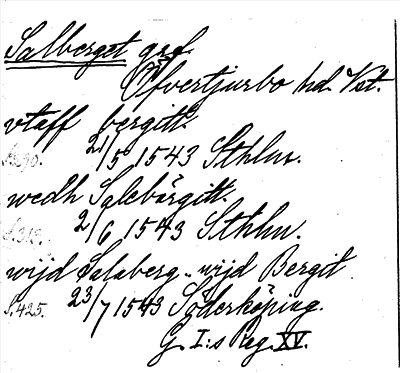 Salberget grf.
Öfvertjurbo hd. Vst.
vtaff bergitt.
S. 90. 21/5 1543 Sthlm.
wedh Salebärgitt.
S. 312. 2/6 1543 Sthlm.
wijd Salaberg.. wijd Bergit.
S. 425. 23/7 1543 Söderköping.
G. I:s Reg. XV.